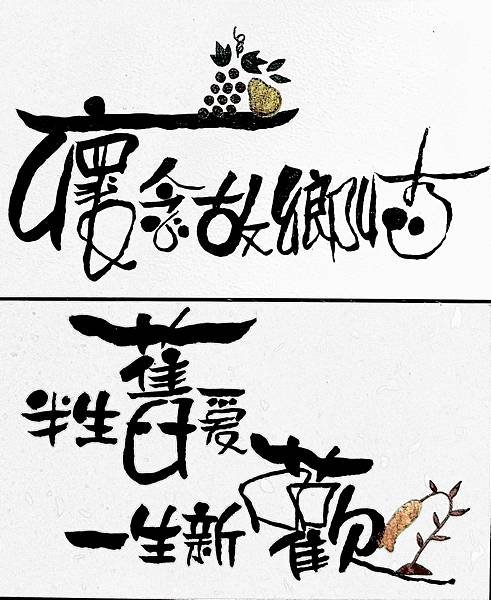 懷念故鄉情
半生舊爱
一生新歡